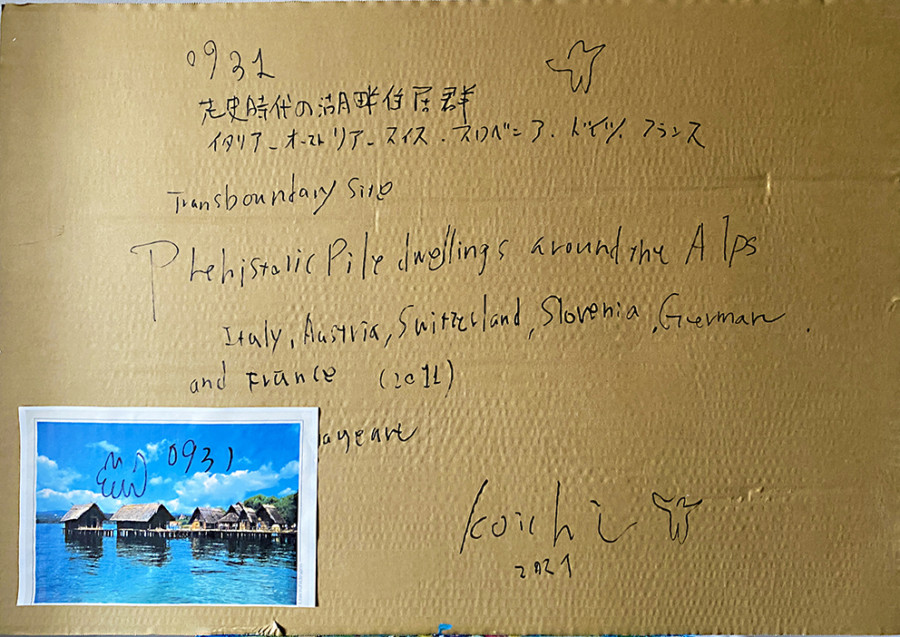 0931
先史時代の湖畔住居群
イタリア-オーストリア-スイス.スロベニア.ドイツ.フランス
Transboundary Site
Prehistoric Pile dwellings around the Alps
Italy, Austria, Switzerland, Slovenia, German
and France (2011)
0931
Koichi
2021